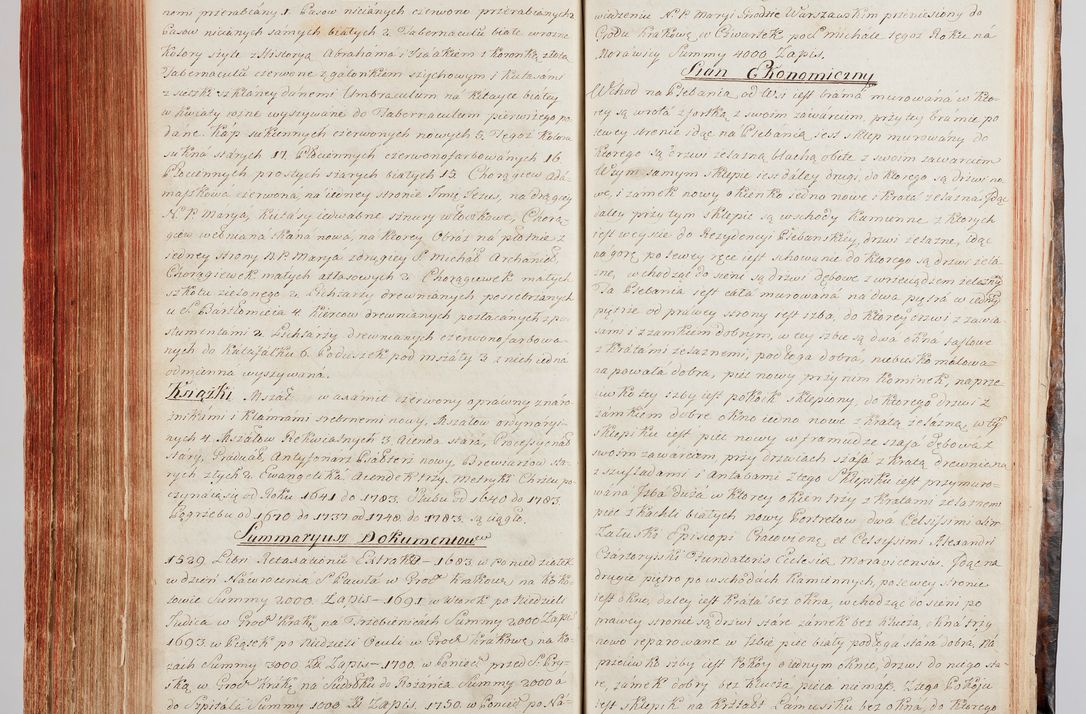 nemi przerabcany 1. Pasow nicianych czerwono przerabcanych 2
Pasow nicianych samych białych 2. Tabernaculu białe w rozne
kolory szyte z Historyą Abrahama i Izaakiem i koronką złotą
Tabernaculu czerwone z galonkiem szychowym i kutasami
Umbraculum na kitayce białey
w kwiaty rozne wyszywane do Tabernaculum pierwszego po-
dane. Kap sukiennych czerwonych nowych 5. Tegoż koloru
sukna starych 17. Płociennych czerwonofarbowanych 16.
Płociennych prostych starych białych 13. Chorągiew Ada-
maszkowa czerwona, na iedney stronie Imię Jezus, na drugiey
N. P. Marya, kutasy iedwabne sznury włoczkowe, Chorą-
giew wełniana nowa, na ktorey Obraz na płotnie z
iedney strony N. P. Marya z drugiey S. Michał Archanioł
Chorągiewek małych atłasowych 2. Chorągiewek małych
szkotu zielonego 2. Lichtarzy drewnianych posrebrzanych
u S. Bartłomieia 4. drewnianych pozłacanych z po-
stumentami 2. Lichtarzy drewnianych czerwonofarbowa-
nych do Katafalku 6. Poduszek pod mszały 3 z nich iedna
odmienna wyszywana.
Książki Mszał w axamit czerwony oprawny z naro-
żnikami i klamrami srebrnemi nowy, Mszałow ordynaryi-
nych 4. Mszałow Rekwialnych 3 Aienda stara, Processyonał
stary, Graduał, Antyfonarz Psałterz nowy Brewiarzow sta-
rych złych 2. Ewangelika. Aiendek trzy, Metryki Chrztu po-
czynaią są od Roku 1641 do 1783. Slubu od 1640 do 1783
Pogrzebu od 1670 do 1737 od 1748. do 1783. są ciągło.
Summaryusz Dokumentow
1529. Libri Retaxationu Extrakt - 1683 w Poniedziałek
w dzień Nawrocenia S. Pawła w Grod. Krakow. na
Summy 2000. Zapis - 1691 w Wtorek po Niedzieli
Judica w Grod. Krak. na Trzebienicach Summy 2000 Zapis
1693. w Piątek po Niedzieli Oculi w Grod. Krakow. na
Summy 3000 Zł Zapis - 1700. w Poniedz. przed S. Pry-
ską w Grod. Krak. na do Rożańca Summy 2000 a
do Szpitala Summy 1000 Zł Zapis, 1750. w Poniedz. po Na-
wiedzeniu N. P. Maryi Grodzie Warszawskim przeniesiony do
Grodu Krakow. w Czwartek pod S. Michale tegoż Roku na
Morawicy Summy 4000 Zapis.
Stan Ekonomiczny
Wchod na Plebanią od Wsi iest brama murowana w kto-
rey są wrota z fortką z swoim zawarciem, przy tey bramie po
lewey stronie idąc na Plebanią iest sklep murowany do
ktorego są drzwi zelazną blachą obite z swoim zawarciem
W tym samym sklepie iest daley drugi, do ktorego są drzwi no-
we, i zamek nowy okienko iedno nowe i krata zelazna. Idąc
daley przy tym sklepie są wschody kamienne z ktorych
iest weyscie do Rezydencyi Plebańskiey, drzwi zelazne, idąc
na gorę po lewey ręce iest schowanie do ktorego są drzwi zela-
zne, wchodząc do sieni są drzwi dębowe z wrzeciądzem zelaznym
Ta Plebania iest cała murowana na dwa piętra w
piętrze od prawey strony iest izba, do ktorey drzwi z zawia-
sami i z zamkiem dobrym, w tey izbie są dwa okna taflowe
z kratami zelaznemi, podłoga dobra, niebiesko malowa-
na powała dobra, piec nowy przy nim kominek, naprze-
ciwko tey izby iest pokoik sklepiony, do ktorego drzwi z
zamkiem dobre okno iedno nowe z kratą zelazną, w tym
sklepiku iest piec nowy w framudze szafa dębowa z
swoim zawarciem przy drzwiach szafa z kratą drewnianą
z szufladami i Antabami z tego Sklepiku iest przymuro-
wana Izba duża w ktorey okien trzy z kratami zelaznemi
piec z kachli białych nowy Portretow dwa Celsissimi olim
Załuski Episcopi Cracovien. et Celsissimi Alexandri
Czartoryski Fundatoris Ecclesiæ Moravicensis. Idąc na
drugie piętro po wschodach kamiennych, po lewey stronie
iest okno, daley iest krata bez okna, wchodząc do sieni po
prawey stronie są drzwi stare zamek bez klucza, okna trzy
nowo reparowane w Izbie piec biały podłoga stara dobra, na
przeciwko izby iest pokoy o iednym oknie, drzwi do niego sta-
re, zamek dobry bez klucza pieca niemasz. Z tego Pokoju
iest sklepik na kształt Lamusiku bez okna, do ktorego